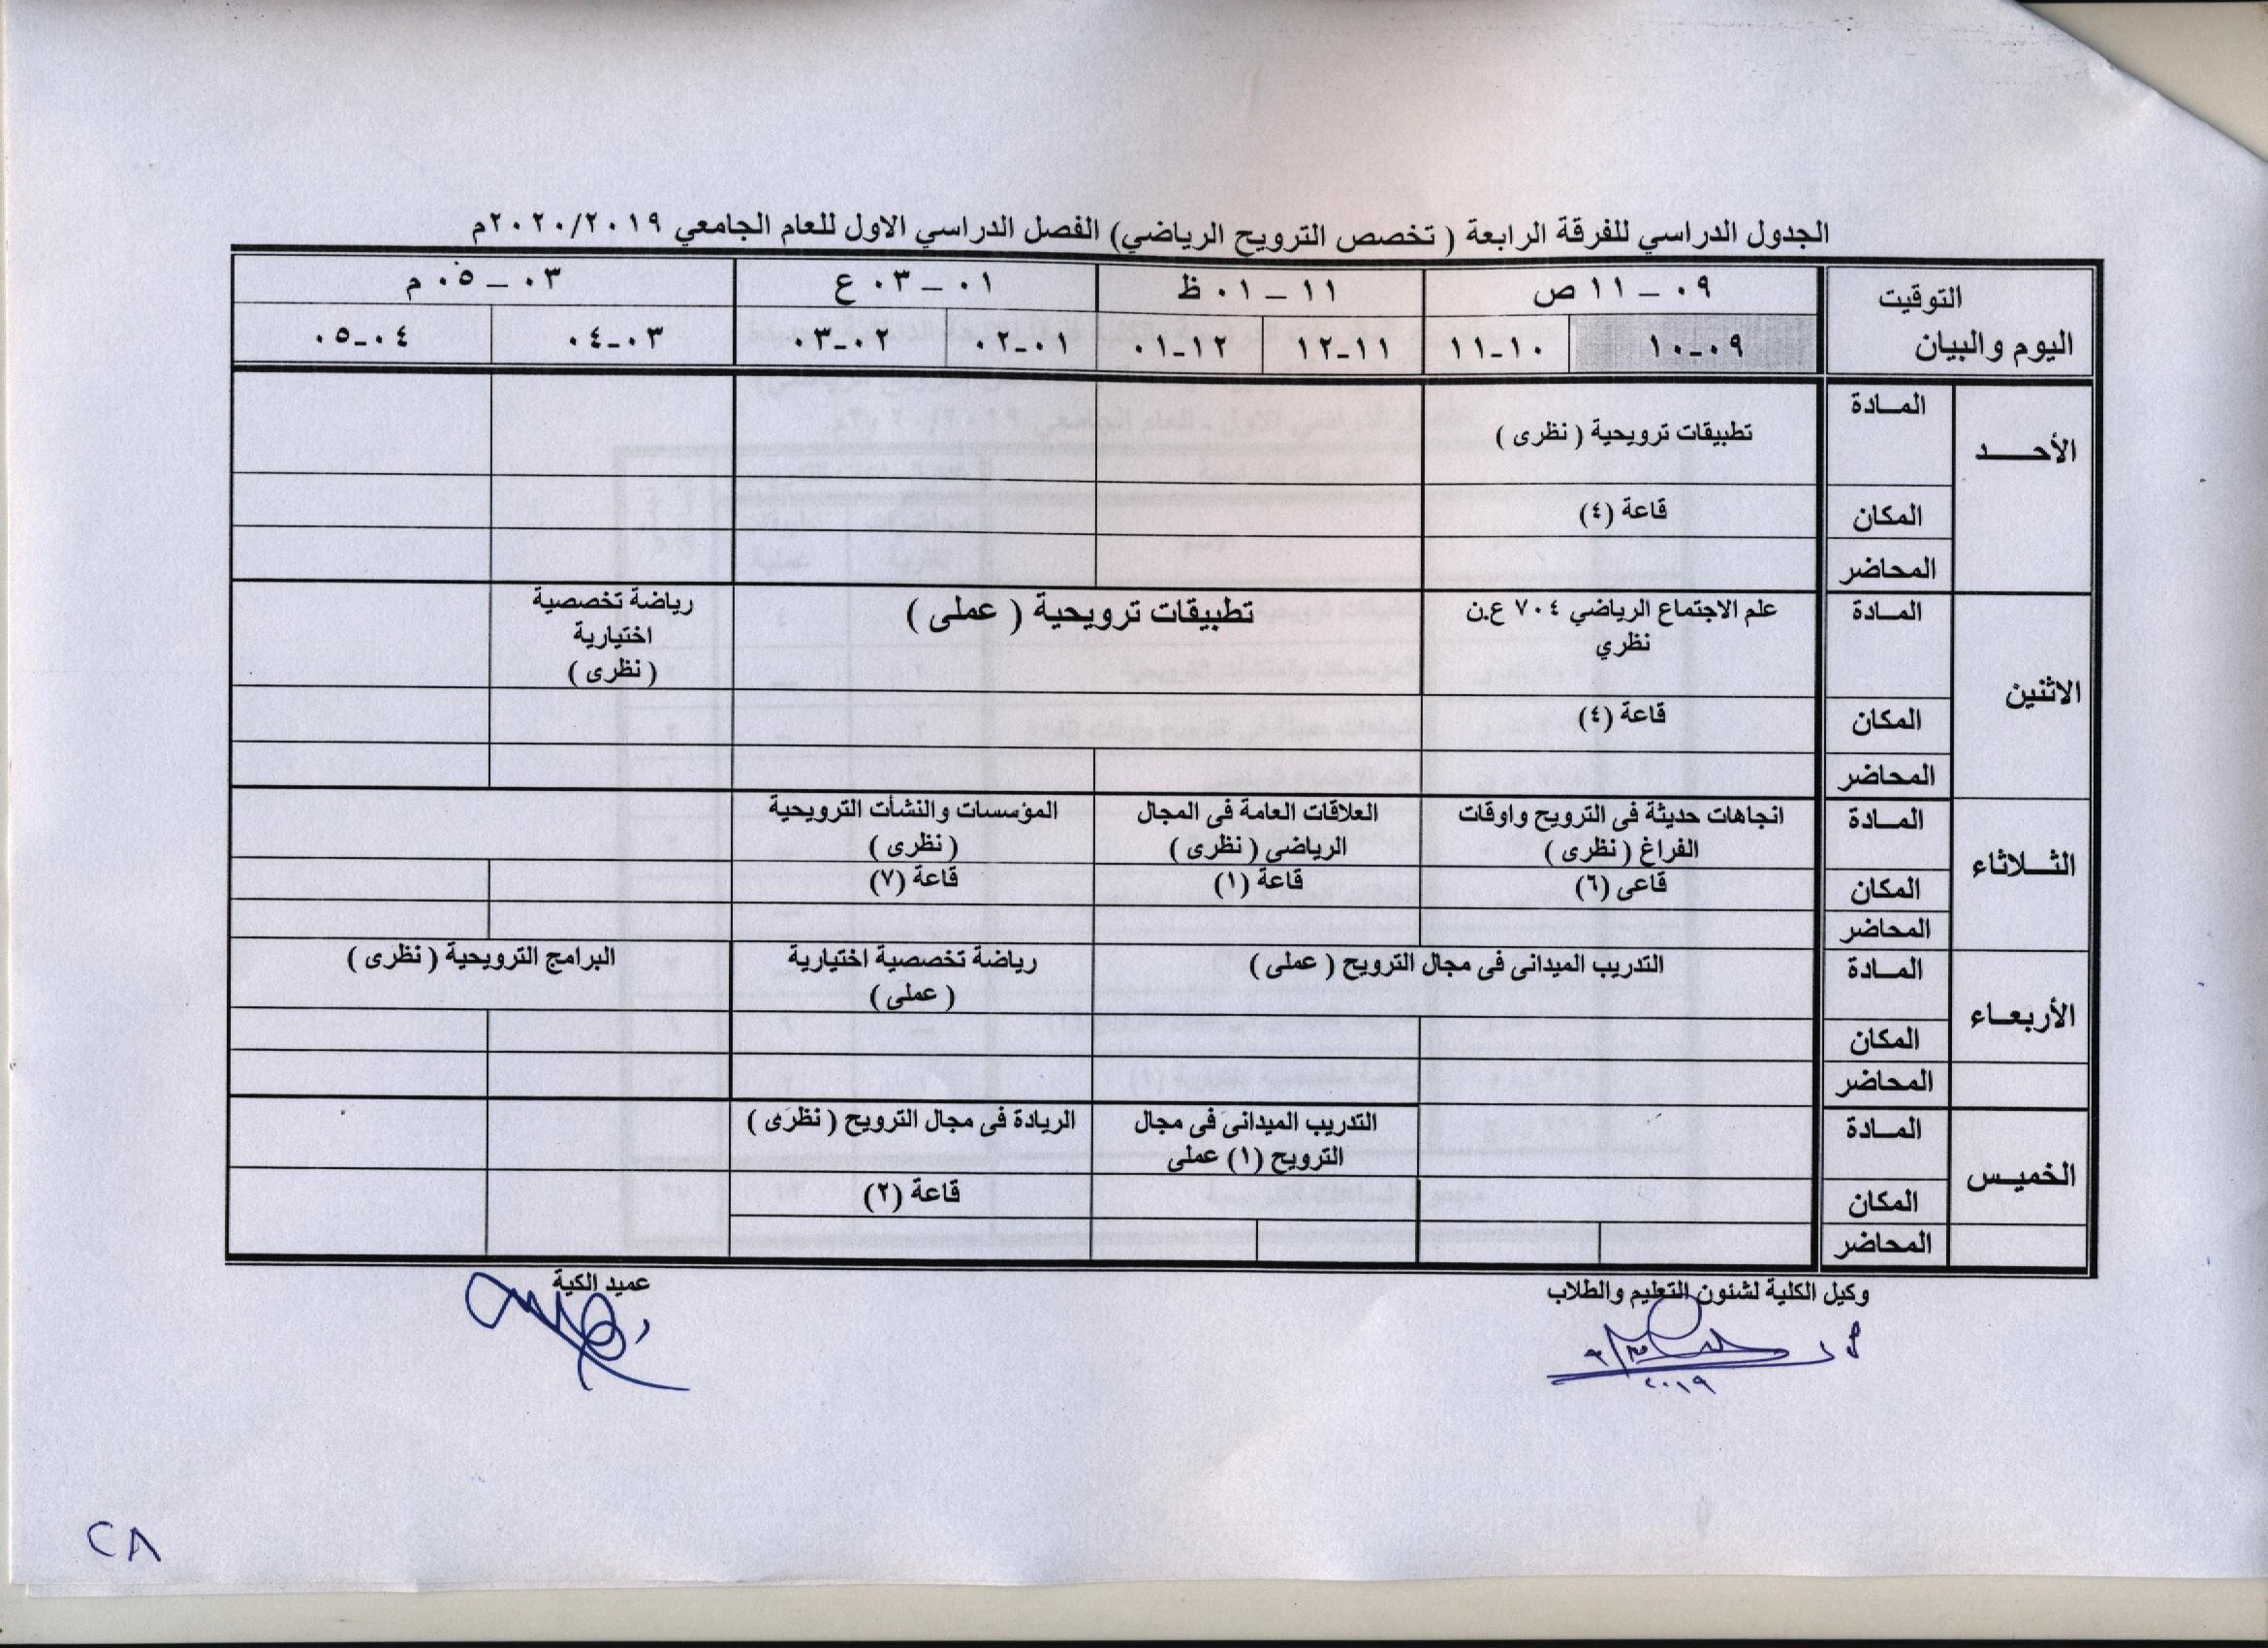 الجدول الدراسي للفرقة الرابعة ( تخصص الترويح الرياضي) الفصل الدراسي الاول للعام الجامعي ٢٠٢٠/٢٠١٩م
التوقيت
اليوم والبيان
٠٩ – ١١ ص
١١ – ٠١ ظ
٠١ – ٠٣ ع
٠٣ – ٠٥ م
٠٩-١٠
١٠-١١
١١-١٢
١٢-٠١
٠١-٠٢
٠٢-٠٣
٠٣-٠٤
٠٤-٠٥
الأحـــد
المــادة
تطبيقات ترويحية ( نظرى )
المكان
قاعة (٤)
المحاضر
الاثنين
المــادة
علم الاجتماع الرياضي ٧٠٤ ع.ن
نظري
تطبيقات ترويحية ( عملى )
رياضة تخصصية
اختيارية
( نظرى )
المكان
قاعة (٤)
المحاضر
الثــلاثاء
المــادة
انجاهات حديثة فى الترويح واوقات
الفراغ ( نظرى )
العلاقات العامة فى المجال
الرياضى ( نظرى )
المؤسسات والنشأت الترويحية
( نظرى )
المكان
قاعى (٦)
قاعة (١)
قاعة (٧)
المحاضر
الأربعــاء
المــادة
التدريب الميدانى فى مجال الترويح ( عملى )
رياضة تخصصية اختيارية
( عملى )
البرامج الترويحية ( نظرى )
المكان
المحاضر
الخميــس
المــادة
التدريب الميدانى فى مجال
الترويح (١) عملى
الريادة فى مجال الترويح ( نظرى )
المكان
قاعة (٢)
المحاضر
وكيل الكلية لشئون التعليم والطلاب
عميد الكية
٢٠١٩
٢٨